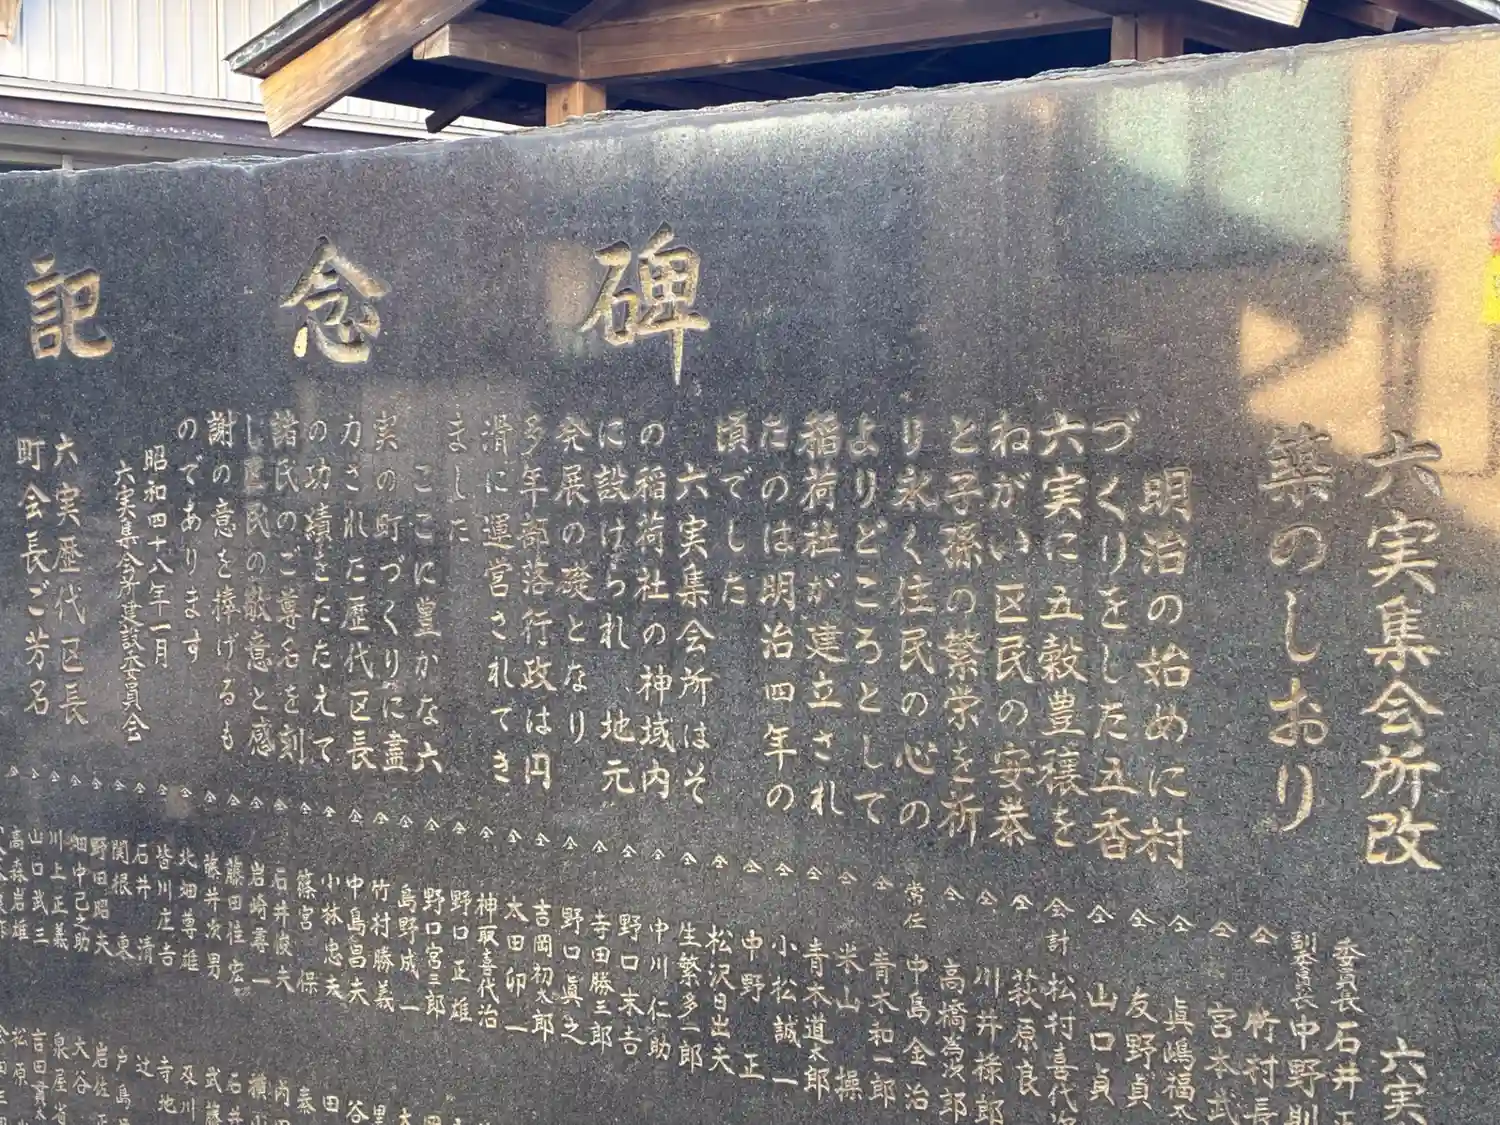 記念碑
六実集会所改
築のしおり
明治の始めに村
づくりをした五香
六実に五穀豊穣を
ねがい区民の安泰
と子孫の繁栄を祈
り永く住民の心の
よりどころとして
稲荷社が建立され
たのは明治四年の
頃でした
六実集会所はそ
の稲荷社の神域内
に設けられ、地元
発展の礎となり
多年部落行政は円
滑に運営されてき
ました
ここに豊かな六
実の町づくりに盡
力された歴代区長
の功績をたたえて
諸氏のご尊名を刻
し区民の敬意と感
謝の意を捧げるも
のであります
昭和四十八年一月
六実集会所建設委員会
六実歴代区長
町会長ご芳名
六実
委員長 石井正
副委員長 中野則
仝 竹村長
仝 宮本武
仝 眞嶋福
仝 友野貞
仝 山口貞
会計 松村喜代次
仝 萩原良
仝 川井禄郎
仝 高橋為次郎
常任 中島金治
仝 青木和一郎
仝 米山操
仝 青木道太郎
仝 小松誠一
仝 中野正
仝 松沢日出夫
仝 生繁多一郎
仝 中川仁助
仝 野口末吉
仝 寺田勝三郎
仝 野口眞之
仝 吉岡初太郎
仝 太田卯一
仝 神取喜代治
仝 野口正雄
仝 野口宮三郎
仝 島野成一
仝 竹村勝義
仝 中島昌夫
仝 小林忠夫
仝 篠宮保
仝 石井俊夫
仝 岩崎壽一
仝 藤田佳宏
仝 藤井次男
仝 北畑尊雄
仝 皆川庄吉
仝 石井清
仝 関根東
仝 野田昭夫
仝 畑中己之助
仝 川上正義
仝 山口武三
仝 高森岩雄